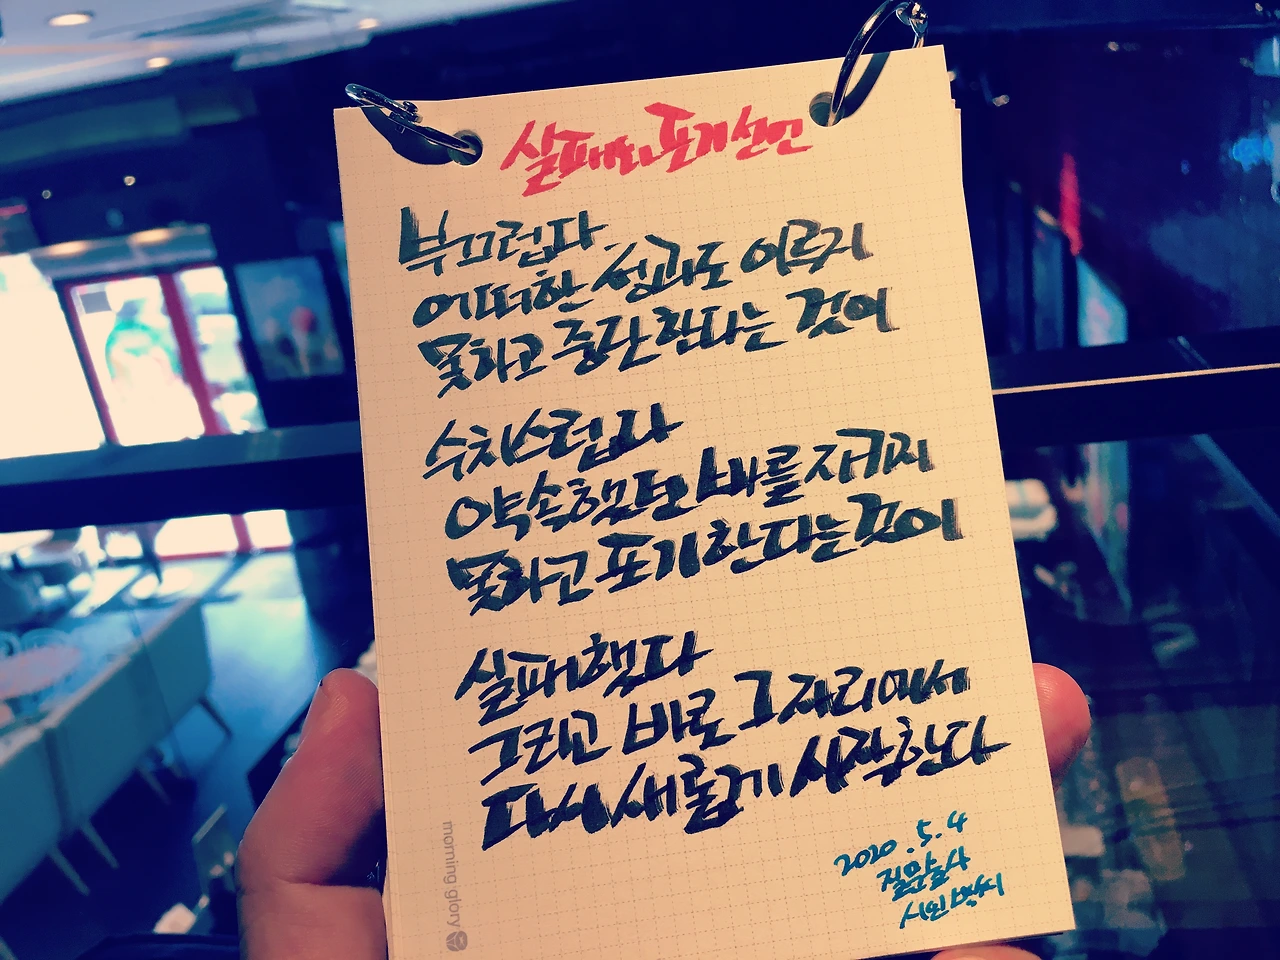 실패와 포기 선언
부끄럽다
어떠한 성과도 이루지
못하고 중단한다는 것이
수치스럽다
약속했던 바를 지키지
못하고 포기한다는 것이
실패했다
그리고 바로 그 자리에서
다시 새롭게 시작한다
2020.5.4
질문술사
시인박씨
morning glory